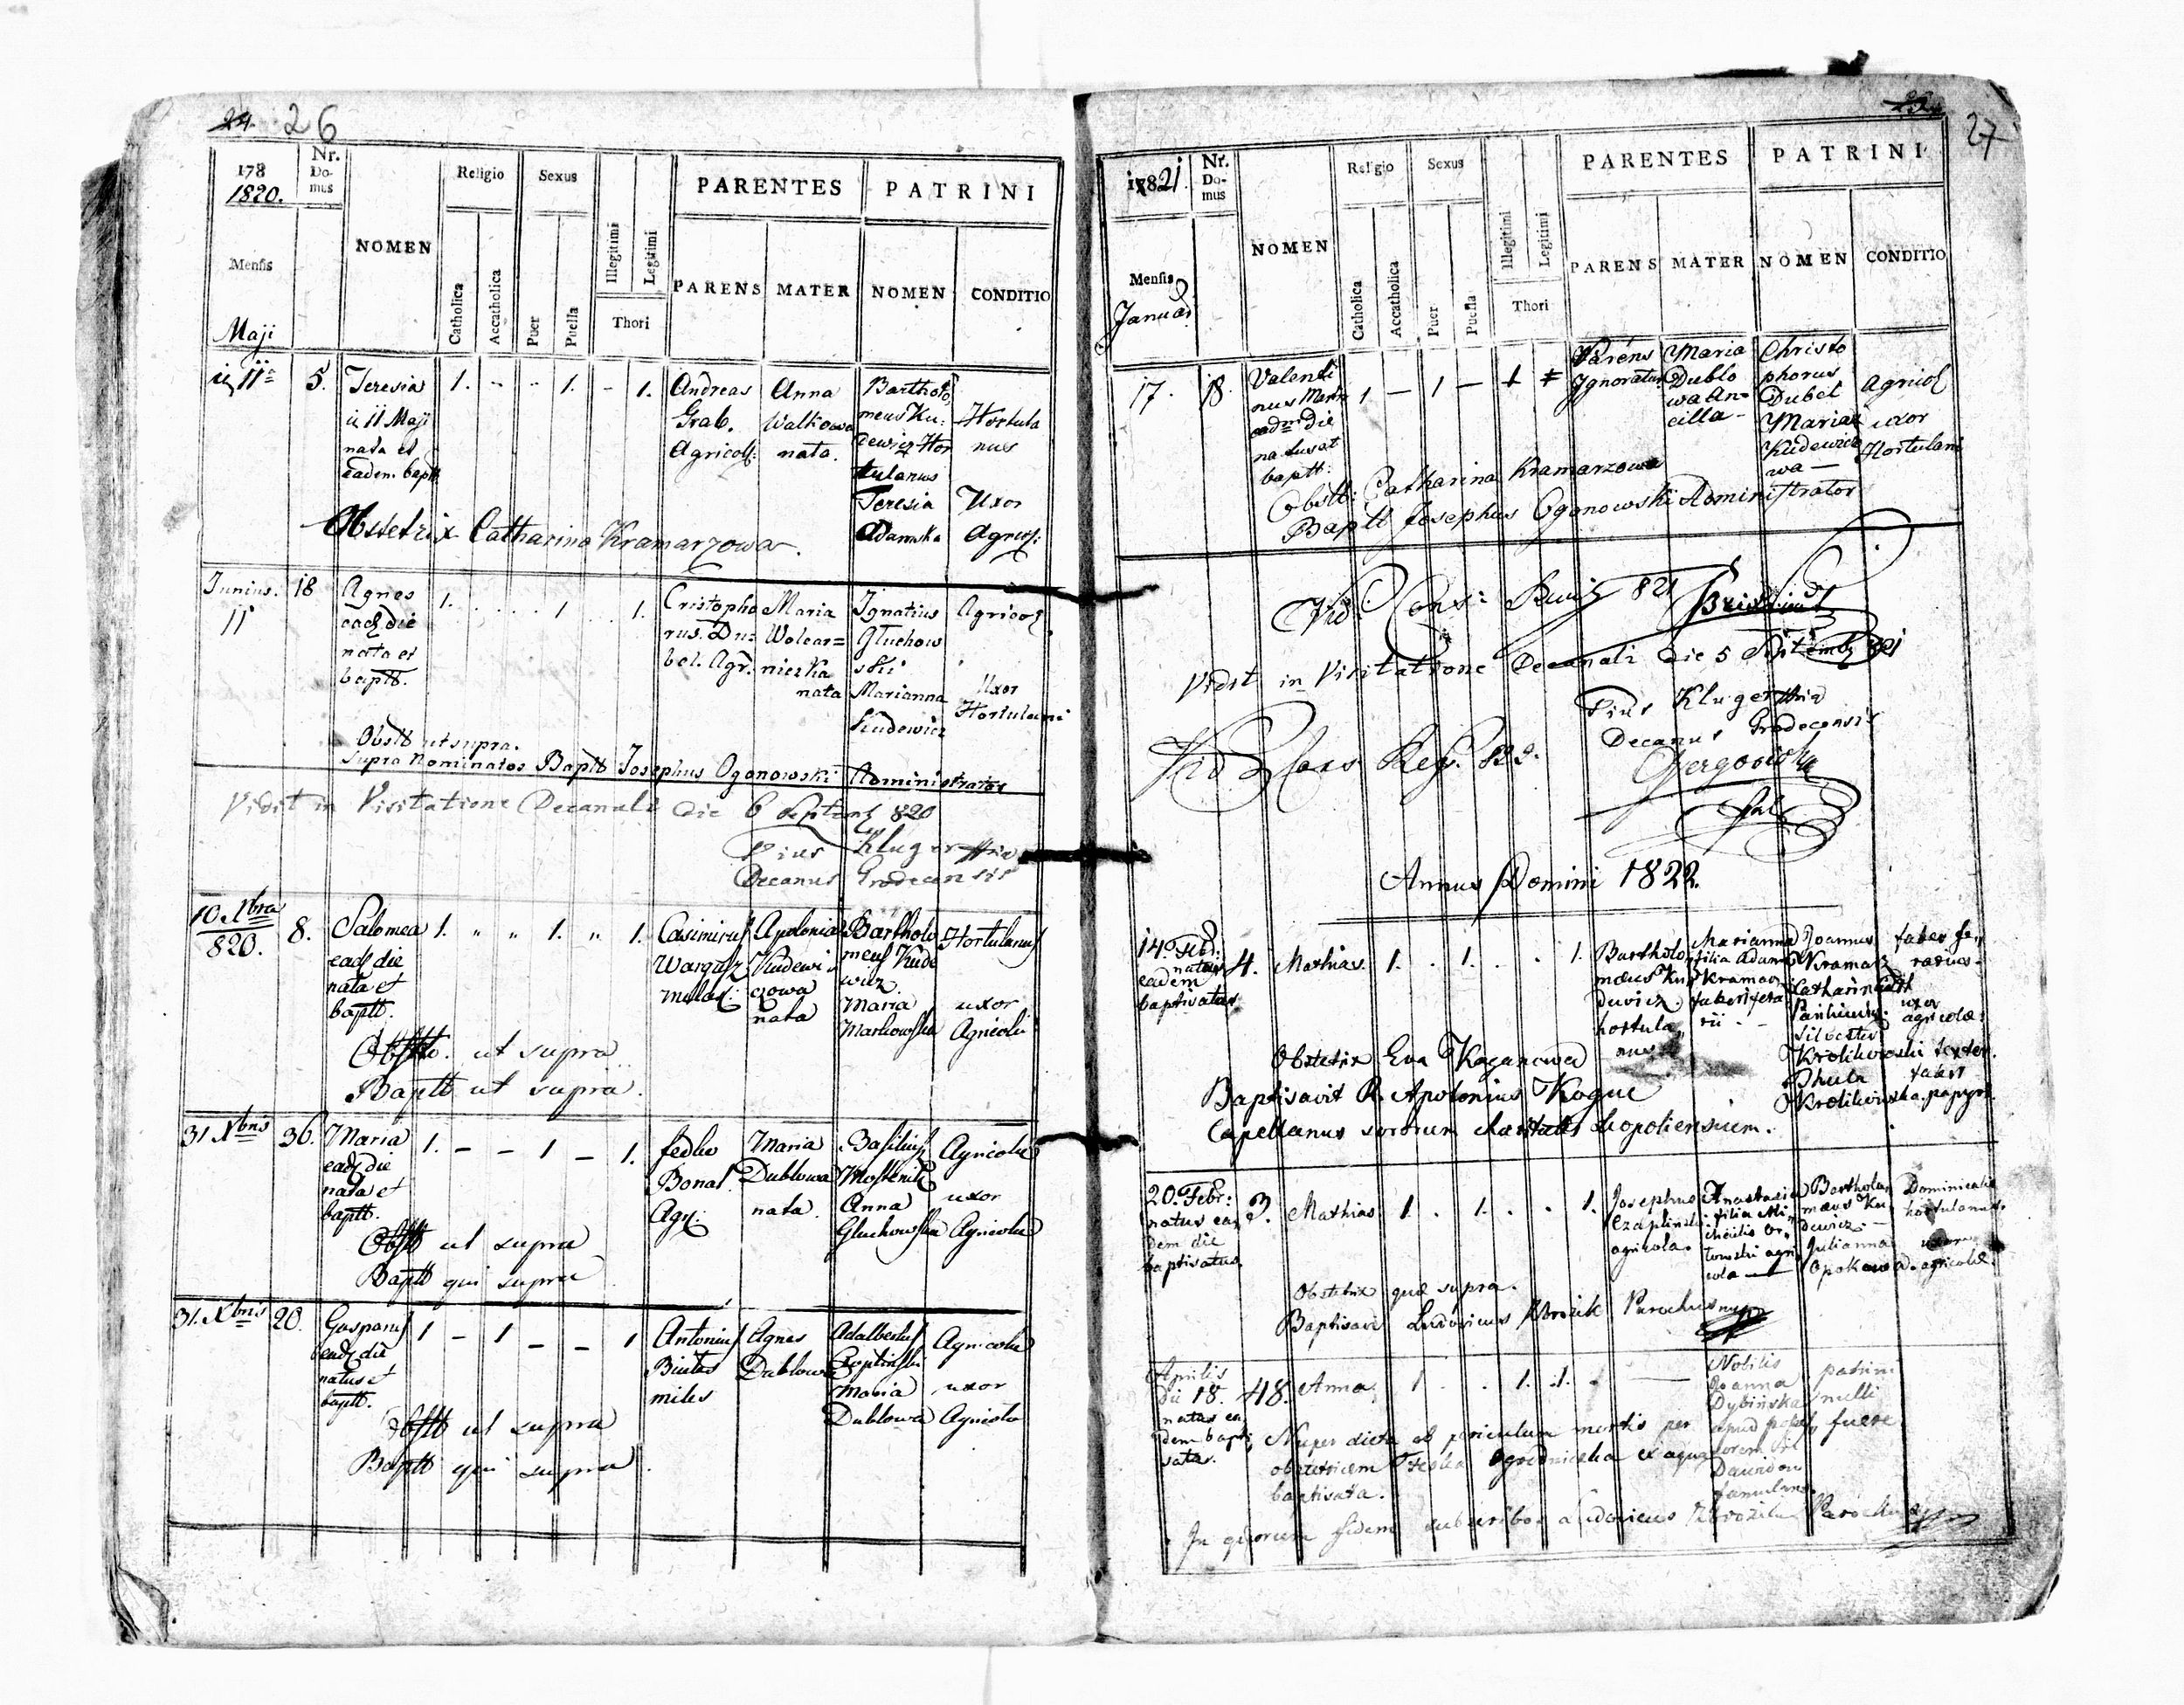 24. 26
178
1820.
Nr. Domus
NOMEN
Religio
Sexus
Catholica
Accatholica
Puer
Puella
Illegitimi
Legitimi
Thori
PARENTES
PATRINI
PARENS
MATER
NOMEN
CONDITIO
Mensis
Maji
11
5.
Teresia
ii 11 Maji
nata et
eadem bapt
1.
1.
1.
Andreas
Grab.
Agricol:
Anna
Walkowa
nata.
Bartholo,
meus Ku:
dewicz Hor
tulanus
Teresia
Adamska
Hortula
nus
Uxor
Agricol:
Obstetrix Catharina Kramarzowa.
Junius.
11
18
Agnes
eadem die
nata et
baptt.
1.
1
1.
Cristopho
rus. Du=
bel. Agr.
Maria
Wolear=
niczka
nata
Ignatius
Gluchow
ski
Marianna
Kudewicz
Agricol
Uxor
Hortulani
Obstt ut supra.
Supra Nominatos Baptt Josephus Ogonowski Administrator
Vidit in Visitatione Decanali die 6 Septemb 820
Pius Kluger
Decanus Grodecensis
10 Xbra
820.
8.
Salomea
eadem die
nata et
baptt.
1. " " 1. " 1.
Casimirus
Wargasz
Apolonia
Kudewi
czowa
nata
Bartholo
meus Kude
wicz.
Maria
Markowska
Hortulanus
uxor
Agricolae
Obstt. ut supra
Baptt ut supra.
31 Xbris
36.
Maria
eadem die
nata et
baptt.
1. – – 1 – 1.
fedko
Bonat
Agr:
Maria
Dublowa
nata.
Basilius
Mostenik
Anna
Gluchowska
Agricola
uxor
Agricolae
Obstt ut supra
Baptt qui supra
31. Xbris
20.
Gasparus
eadem die
natus et
baptt.
1 – 1 – – 1
Antonius
miles
Agnes
Dublowa
Adalbertus
Maria
Dublowa
Agricola
uxor
Agricola
Obstt ut supra
Baptt qui supra.
27
17821.
Nr. Domus
NOMEN
Religio
Sexus
Catholica
Accatholica
Puer
Puella
Illegitimi
Legitimi
Thori
PARENTES
PATRINI
PARENS
MATER
NOMEN
CONDITIO
Mensis
Januar
17.
18.
Valenti
nus Martin
eadem die
natus et
baptt:
1 – 1 –
Parens
Ignoratur
Maria
Dublo
wa An=
cilla–
Christo
phorus
Dubel
Maria
Kudewiczo
wa –
Agricol
uxor
Hortulani
Obstt: Catharina Kramarzowa
Baptt Josephus Ogonowski Administrator
Vidit in Visitatione Decanali die 5 Septemb 821
Pius Kluger
Decanus Grodecensis
Annus Domini 1822.
14. Feb:
natus
eadem
baptisatus
4.
Mathias.
1. . 1. . . 1.
Bartholo,
mæus Ku,
dewicz
hortula,
nus
Marianna
filia Adami
Kramarz
fabri ferra
rii –
Joannes
Kramarz
Catharina
Silvester
Krolikowski
Thecla
Krolikowska
faber fer,
rarius–
uxor
agricolæ:
textor.
papyri
Obstetrix Eva Koganowa
Baptisavit R. Apolonius Kogut
Capellanus sororum charitatis Leopoliensium.
20. Febr:
natus ea,
dem die
baptisatus.
3.
Mathias
1. . 1. . . 1.
Josephus
Czaplinski
agricola.
Anastasia
filia Mi,
chaelis Or,
towski agri,
cola –
Bartholo,
mæus Ku,
dewicz –
Julianna
Opokowa
Dominicalis
hortulanus.
uxor
agricolæ.
Obstetrix quæ supra.
Baptisavi Ludovicus Mrozik Parochus mpp
Aprilis
die 18.
natas ea,
dem bapti,
sata.
48.
Anna
1 . . 1. 1.
Nobilis
Joanna
Dybińska
apud
famulans.
patrini
nulli
fuere
Nuper dicta ob periculum mortis per
obstetricem ex aqua
baptisata.
In quorum fidem subscribor Ludovicus Parochus